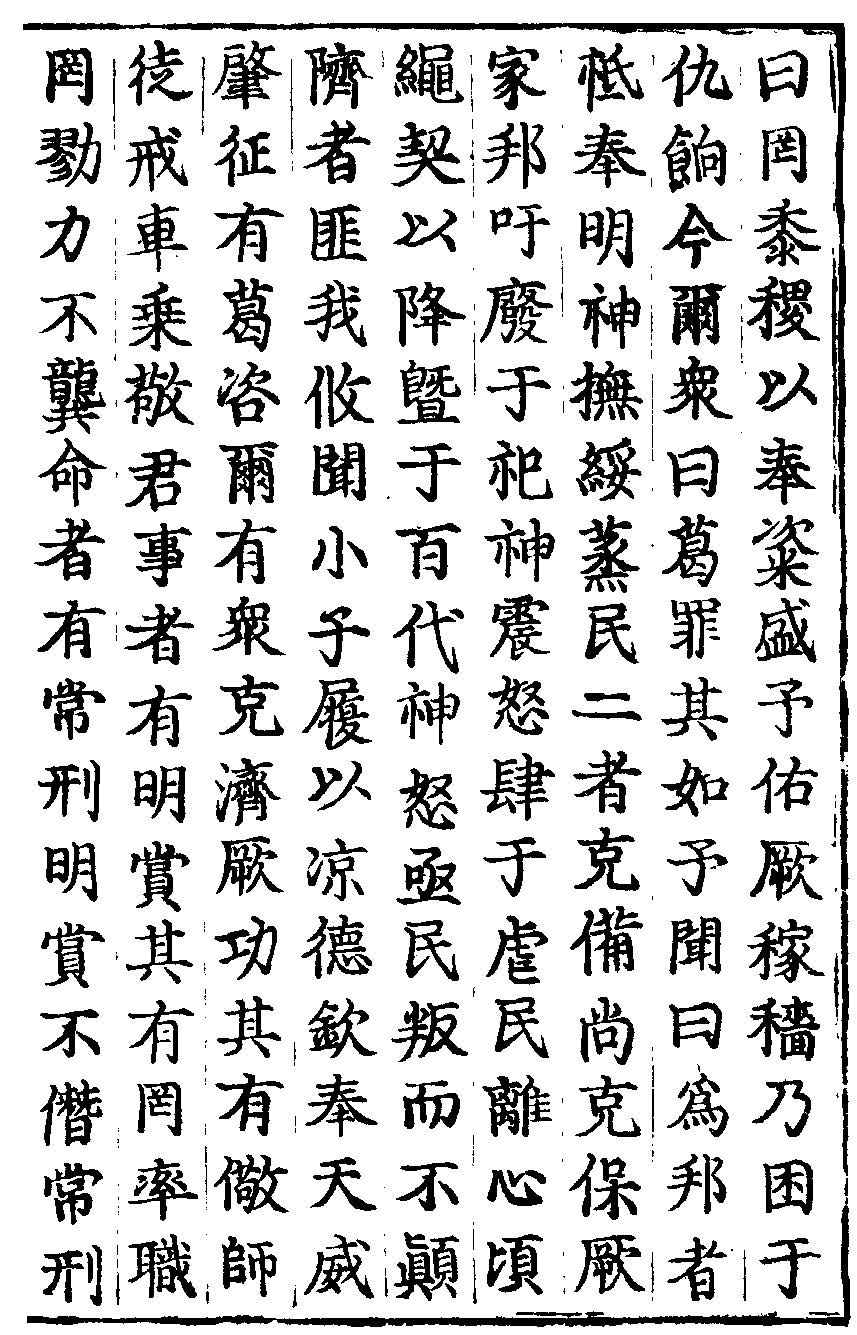 曰罔黍稷以奉粢盛予佑厥稼穡乃困于
仇餉今爾衆曰葛罪其如予聞曰爲邦者
柢奉明神撫綏蒸民二者克備尚克保厥
家邦吁廢于祀神震怒肆于虐民離心頃
繩契以降曁于百代神怒亟民叛而不顛
隮者匪我攸聞小子履以凉德欽奉天威
肇征有葛咨爾有衆克濟厥功其有儆師
徒戒車乗敬君事者有明賞其有罔率職
罔勠力不龔命者有常刑明賞不僭常刑